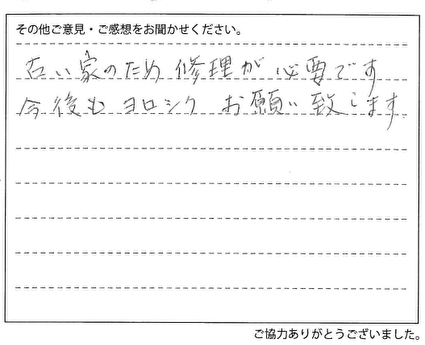 その他ご意見・ご感想をお聞かせください。
古い家のため修理が必要です
今後もヨロシクお願い致します
ご協力ありがとうございました。